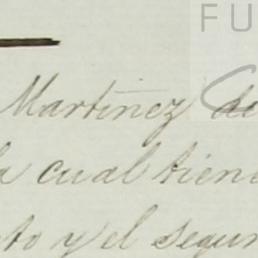 FU
Martinez de
la cual tien
to y el segun